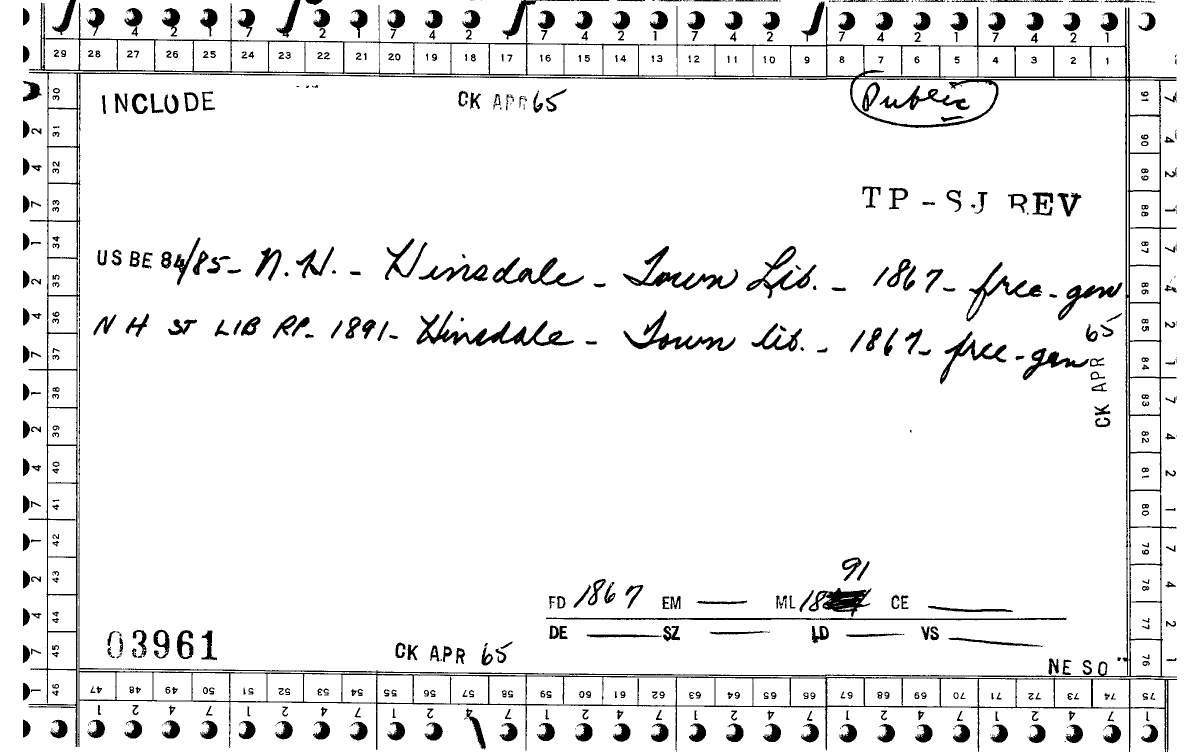 7 4 2 1 7 4 2 1 7 4 2 7 4 2 1 7 4 2 1 7 4 2 1 7 4 2 1
29 28 27 26 25 24 23 22 21 20 19 18 17 16 15 14 13 12 11 10 9 8 7 6 5 4 3 2 1
INCLUDE CK APR 65 Public
TP-SJ REV
US BE 84/85- N.H. - Hinsdale - Town Lib. - 1867- free-gen
N H ST LIB RP- 1891- Hinsdale - Town lib. - 1867- free-gen
CK APR 65
91
FD 1867 EM — ML 18 CE —
DE — SZ — LD — VS —
03961 CK APR 65
NE SO
30 31 32 33 34 35 36 37 38 39 40 41 42 43 44 45 46
91 90 89 88 87 86 85 84 83 82 81 80 79 78 77 76
47 48 49 50 51 52 53 54 55 56 57 58 59 60 61 62 63 64 65 66 67 68 69 70 71 72 73 74 75